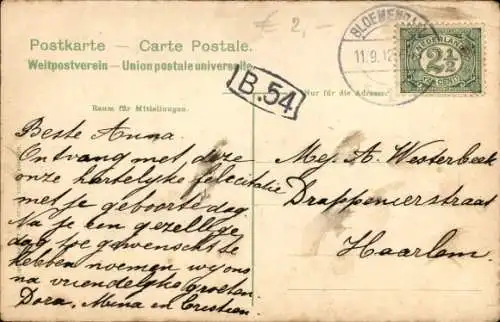 € 2,-
Postkarte — Carte Postale.
Weltpostverein – Union postale universelle
BLOEMENDAAL
11.9.12
NEDERLAND
2½
CENT
B.54
Raum für Mitteilungen.
Nur für die Adresse.
Beste Anna.
Ontvang met deze
onze hartelyke felicitatie
met je geboortedag.
Na je een gezellige
dag toe gewenscht te
hebben noemen wy ons
na vriendelyke groeten
Dora, Mina en
Mej. A. Westerbeek
Drappenierstraat
Haarlem.